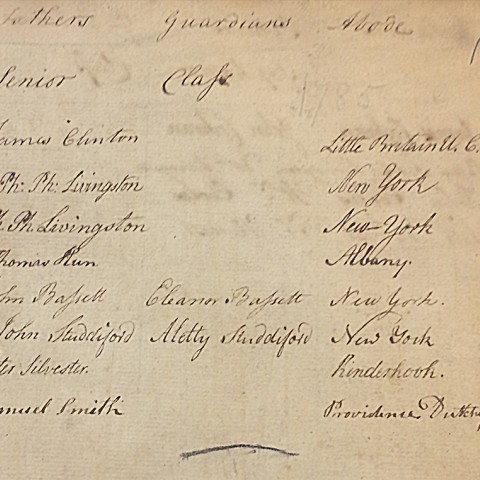 Fathers Guardians Abode
Senior Class
1785
James Clinton Little Britain U. C.
Ph: Ph: Livingston New York
Ph Livingston New-York
Thomas Hun Albany.
John Bassett Eleanor Bassett New York.
John Studdiford Metty Studdiford New York
Silvester. Kinderhook.
Samuel Smith Providence Dutch